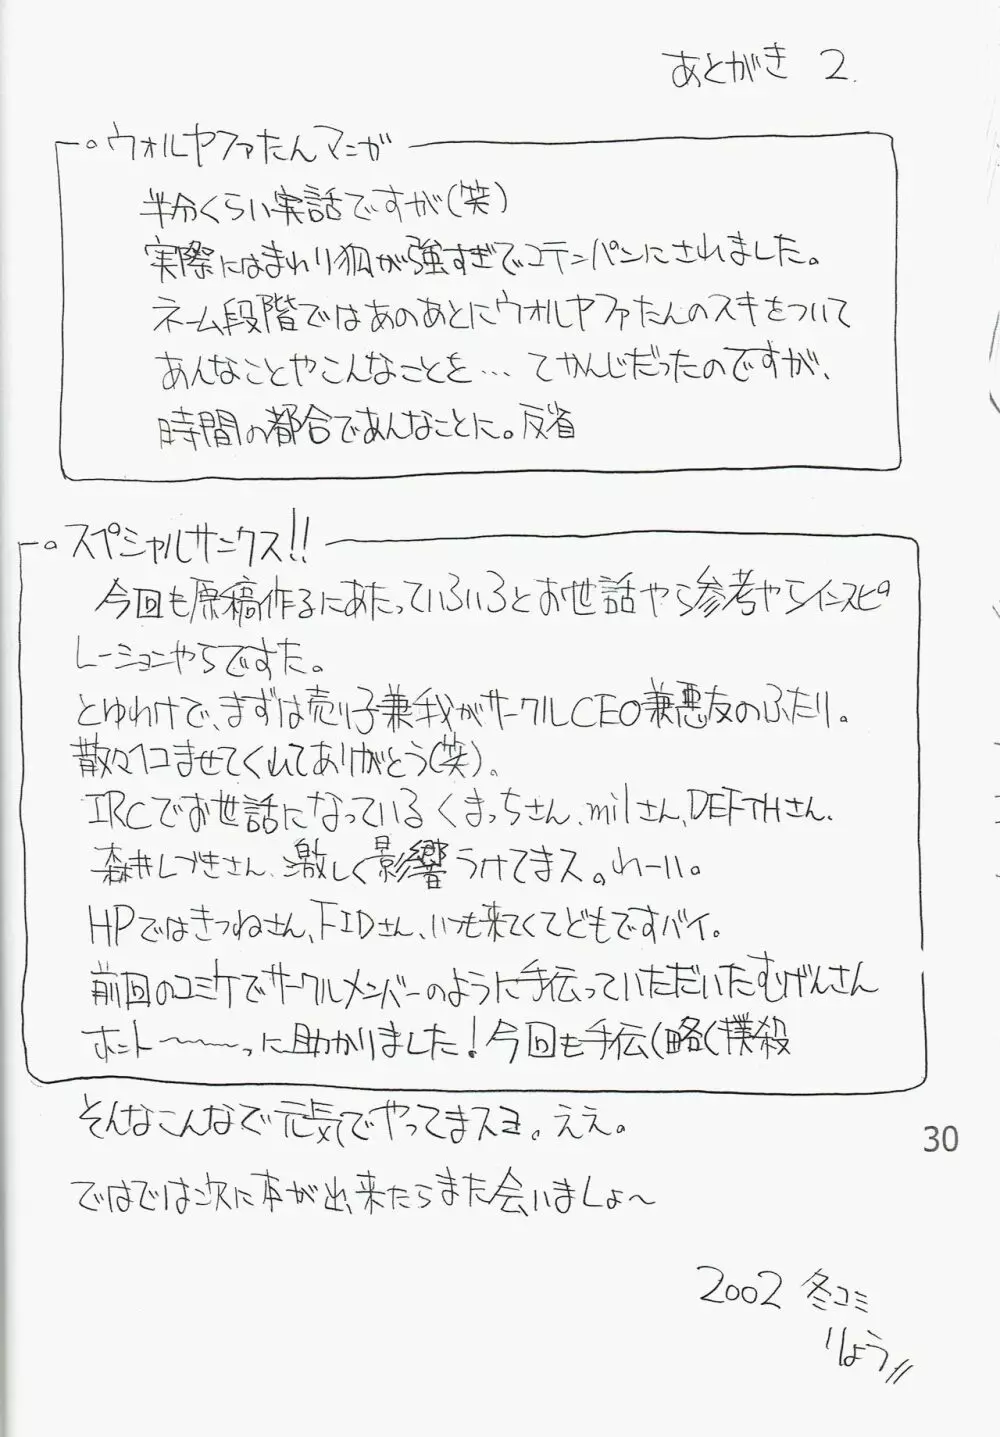 あとがき 2.
ウォルヤファたんマンガ
半分くらい実話ですが(笑)
実際にはまわり狐が強すぎでコテンパンにされました。
ネーム段階ではあのあとにウォルヤファたんのスキをついて
あんなことやこんなことを… てかんじだったのですが、
時間の都合であんなことに。反省
スペシャルサンクス!!
今回も原稿作るにあたっていろいろとお世話やら参考やらインスピ
レーションやらですた。
とゆわけで、まずは売り子兼我がサークルCEO兼悪友のふたり。
散々ヘコませてくれてありがとう(笑)。
IRCでお世話になっているくまっちさん、milさん、DEFTHさん、
森井しづきさん、激しく影響うけてまス。わーい。
HPではきつねさん、FIDさん、いつも来てくてどもですバイ。
前回のコミケでサークルメンバーのように手伝っていただいたむげんさん
ホント〜〜〜〜っに助かりました!今回も手伝(略(撲殺
そんなこんなで元気でやってまスヨ。ええ。
ではでは次に本が出来たらまた会いましょ〜
30
2002 冬コミ
りょう